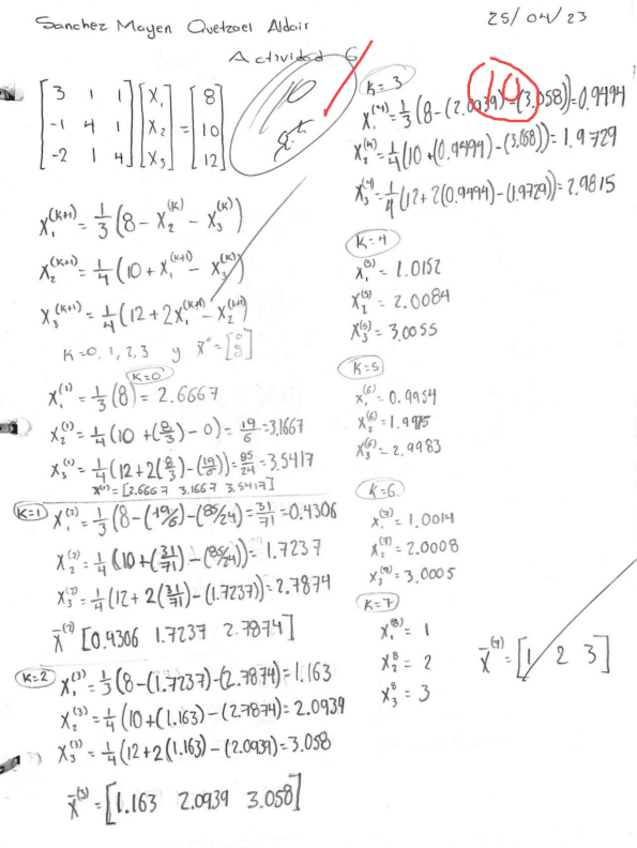 Sanchez Mayen Quetzael Aldair
25/04/23
Actividad 6
10
[3 1 1; -1 4 1; -2 1 4] [X₁; X₂; X₃] = [8; 10; 12]
X₁^(K+1) = 1/3 (8 - X₂^(K) - X₃^(K))
X₂^(K+1) = 1/4 (10 + X₁^(K+1) - X₃^(K))
X₃^(K+1) = 1/4 (12 + 2X₁^(K+1) - X₂^(K+1))
K=0, 1, 2, 3 y X̄° = [0 0 0]
K=0
X₁^(1) = 1/3 (8) = 2.6667
X₂^(1) = 1/4 (10 + (8/3) - 0) = 19/6 = 3.1667
X₃^(1) = 1/4 (12 + 2(8/3) - (19/6)) = 85/24 = 3.5417
X^(1) = [2.6667 3.1667 3.5417]
K=1
X₁^(2) = 1/3 (8 - (19/6) - (85/24)) = 31/71 = 0.4306
X₂^(2) = 1/4 (10 + (31/71) - (85/24)) = 1.7237
X₃^(2) = 1/4 (12 + 2(31/71) - (1.7237)) = 2.7874
X̄^(2) [0.4306 1.7237 2.7874]
K=2
X₁^(3) = 1/3 (8 - (1.7237) - (2.7874) = 1.163
X₂^(3) = 1/4 (10 + (1.163) - (2.7874) = 2.0939
X₃^(3) = 1/4 (12 + 2(1.163) - (2.0939) = 3.058
X̄^(3) = [1.163 2.0939 3.058]
K=3
10
X₁^(4) = 1/3 (8 - (2.0939) - (3.058)) = 0.9494
X₂^(4) = 1/4 (10 + (0.9494) - (3.058)) = 1.9729
X₃^(4) = 1/4 (12 + 2(0.9494) - (1.9729)) = 2.9815
K=4
X₁^(5) = 1.0152
X₂^(5) = 2.0084
X₃^(5) = 3.0055
K=5
X₁^(6) = 0.9954
X₂^(6) = 1.9975
X₃^(6) = 2.9983
K=6
X₁^(7) = 1.0014
X₂^(7) = 2.0008
X₃^(7) = 3.0005
K=7
X₁^(8) = 1
X₂^8 = 2
X₃^8 = 3
X̄^(7) = [1 2 3]